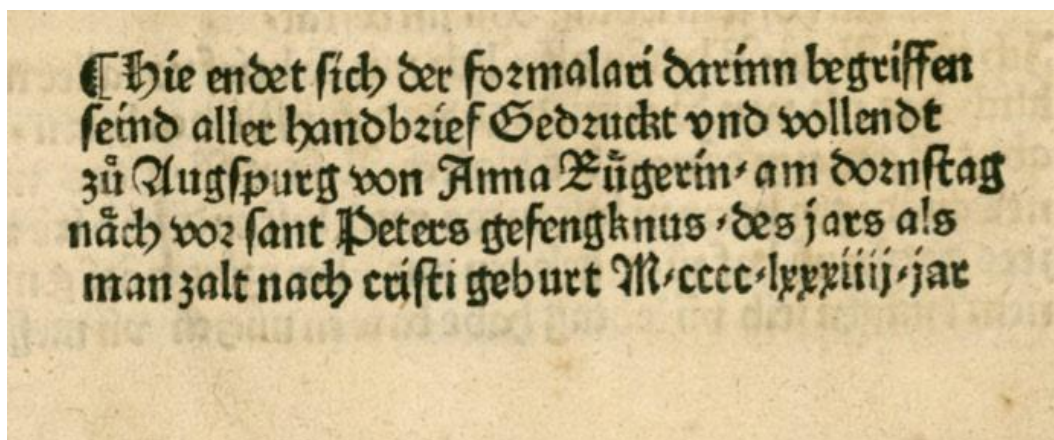 ¶ Hie endet sich der formalari darinn begriffen
seind aller handbrief Gedruckt vnd vollendt
zů Augspurg von Anna Růgerin, am dornstag
nåch vor sant Peters gefengknus, des jars als
man zalt nach cristi geburt M,cccc,lxxxiiij,jar